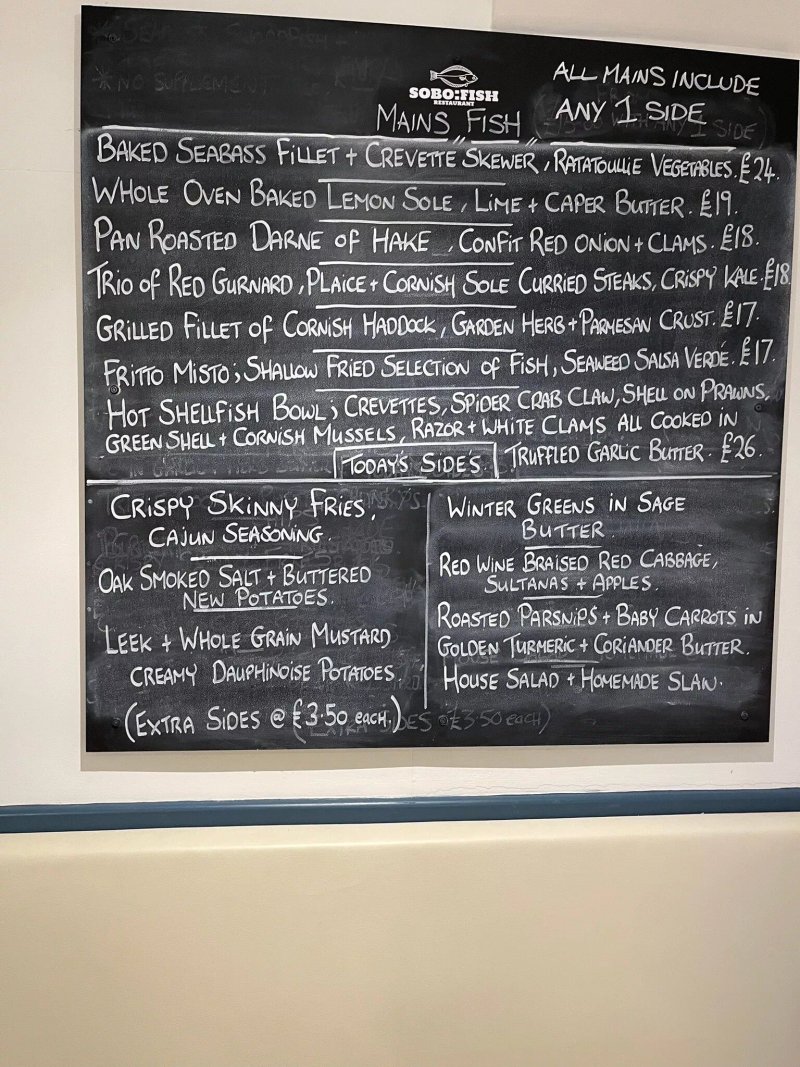 SOBO:FISH
RESTAURANT
MAINS FISH
ALL MAINS INCLUDE
ANY 1 SIDE
BAKED SEABASS FILLET + CREVETTE SKEWER, RATATOULLIE VEGETABLES. £24.
WHOLE OVEN BAKED LEMON SOLE, LIME + CAPER BUTTER. £19.
PAN ROASTED DARNE OF HAKE, CONFIT RED ONION + CLAMS. £18.
TRIO OF RED GURNARD, PLAICE + CORNISH SOLE CURRIED STEAKS, CRISPY KALE. £18
GRILLED FILLET OF CORNISH HADDOCK, GARDEN HERB + PARMESAN CRUST. £17.
FRITTO MISTO; SHALLOW FRIED SELECTION OF FISH, SEAWEED SALSA VERDÉ. £17.
HOT SHELLFISH BOWL; CREVETTES, SPIDER CRAB CLAW, SHELL ON PRAWNS,
GREEN SHELL + CORNISH MUSSELS, RAZOR + WHITE CLAMS ALL COOKED IN
TRUFFLED GARLIC BUTTER. £26.
TODAY'S SIDE'S
CRISPY SKINNY FRIES,
CAJUN SEASONING.
OAK SMOKED SALT + BUTTERED
NEW POTATOES.
LEEK + WHOLE GRAIN MUSTARD
CREAMY DAUPHINOISE POTATOES.
(EXTRA SIDES @ £3.50 EACH.)
WINTER GREENS IN SAGE
BUTTER.
RED WINE BRAISED RED CABBAGE,
SULTANAS + APPLES.
ROASTED PARSNIPS + BABY CARROTS IN
GOLDEN TURMERIC + CORIANDER BUTTER.
HOUSE SALAD + HOMEMADE SLAW.